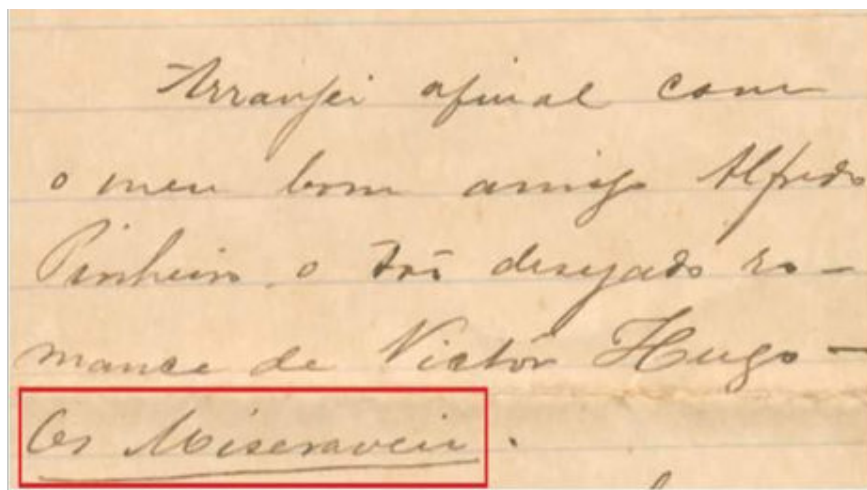 Arranjei afinal com
o meu bom amigo Alfredo
Pinheiro, o tão desejado ro-
mance de Victor Hugo -
Os Miseraveis.